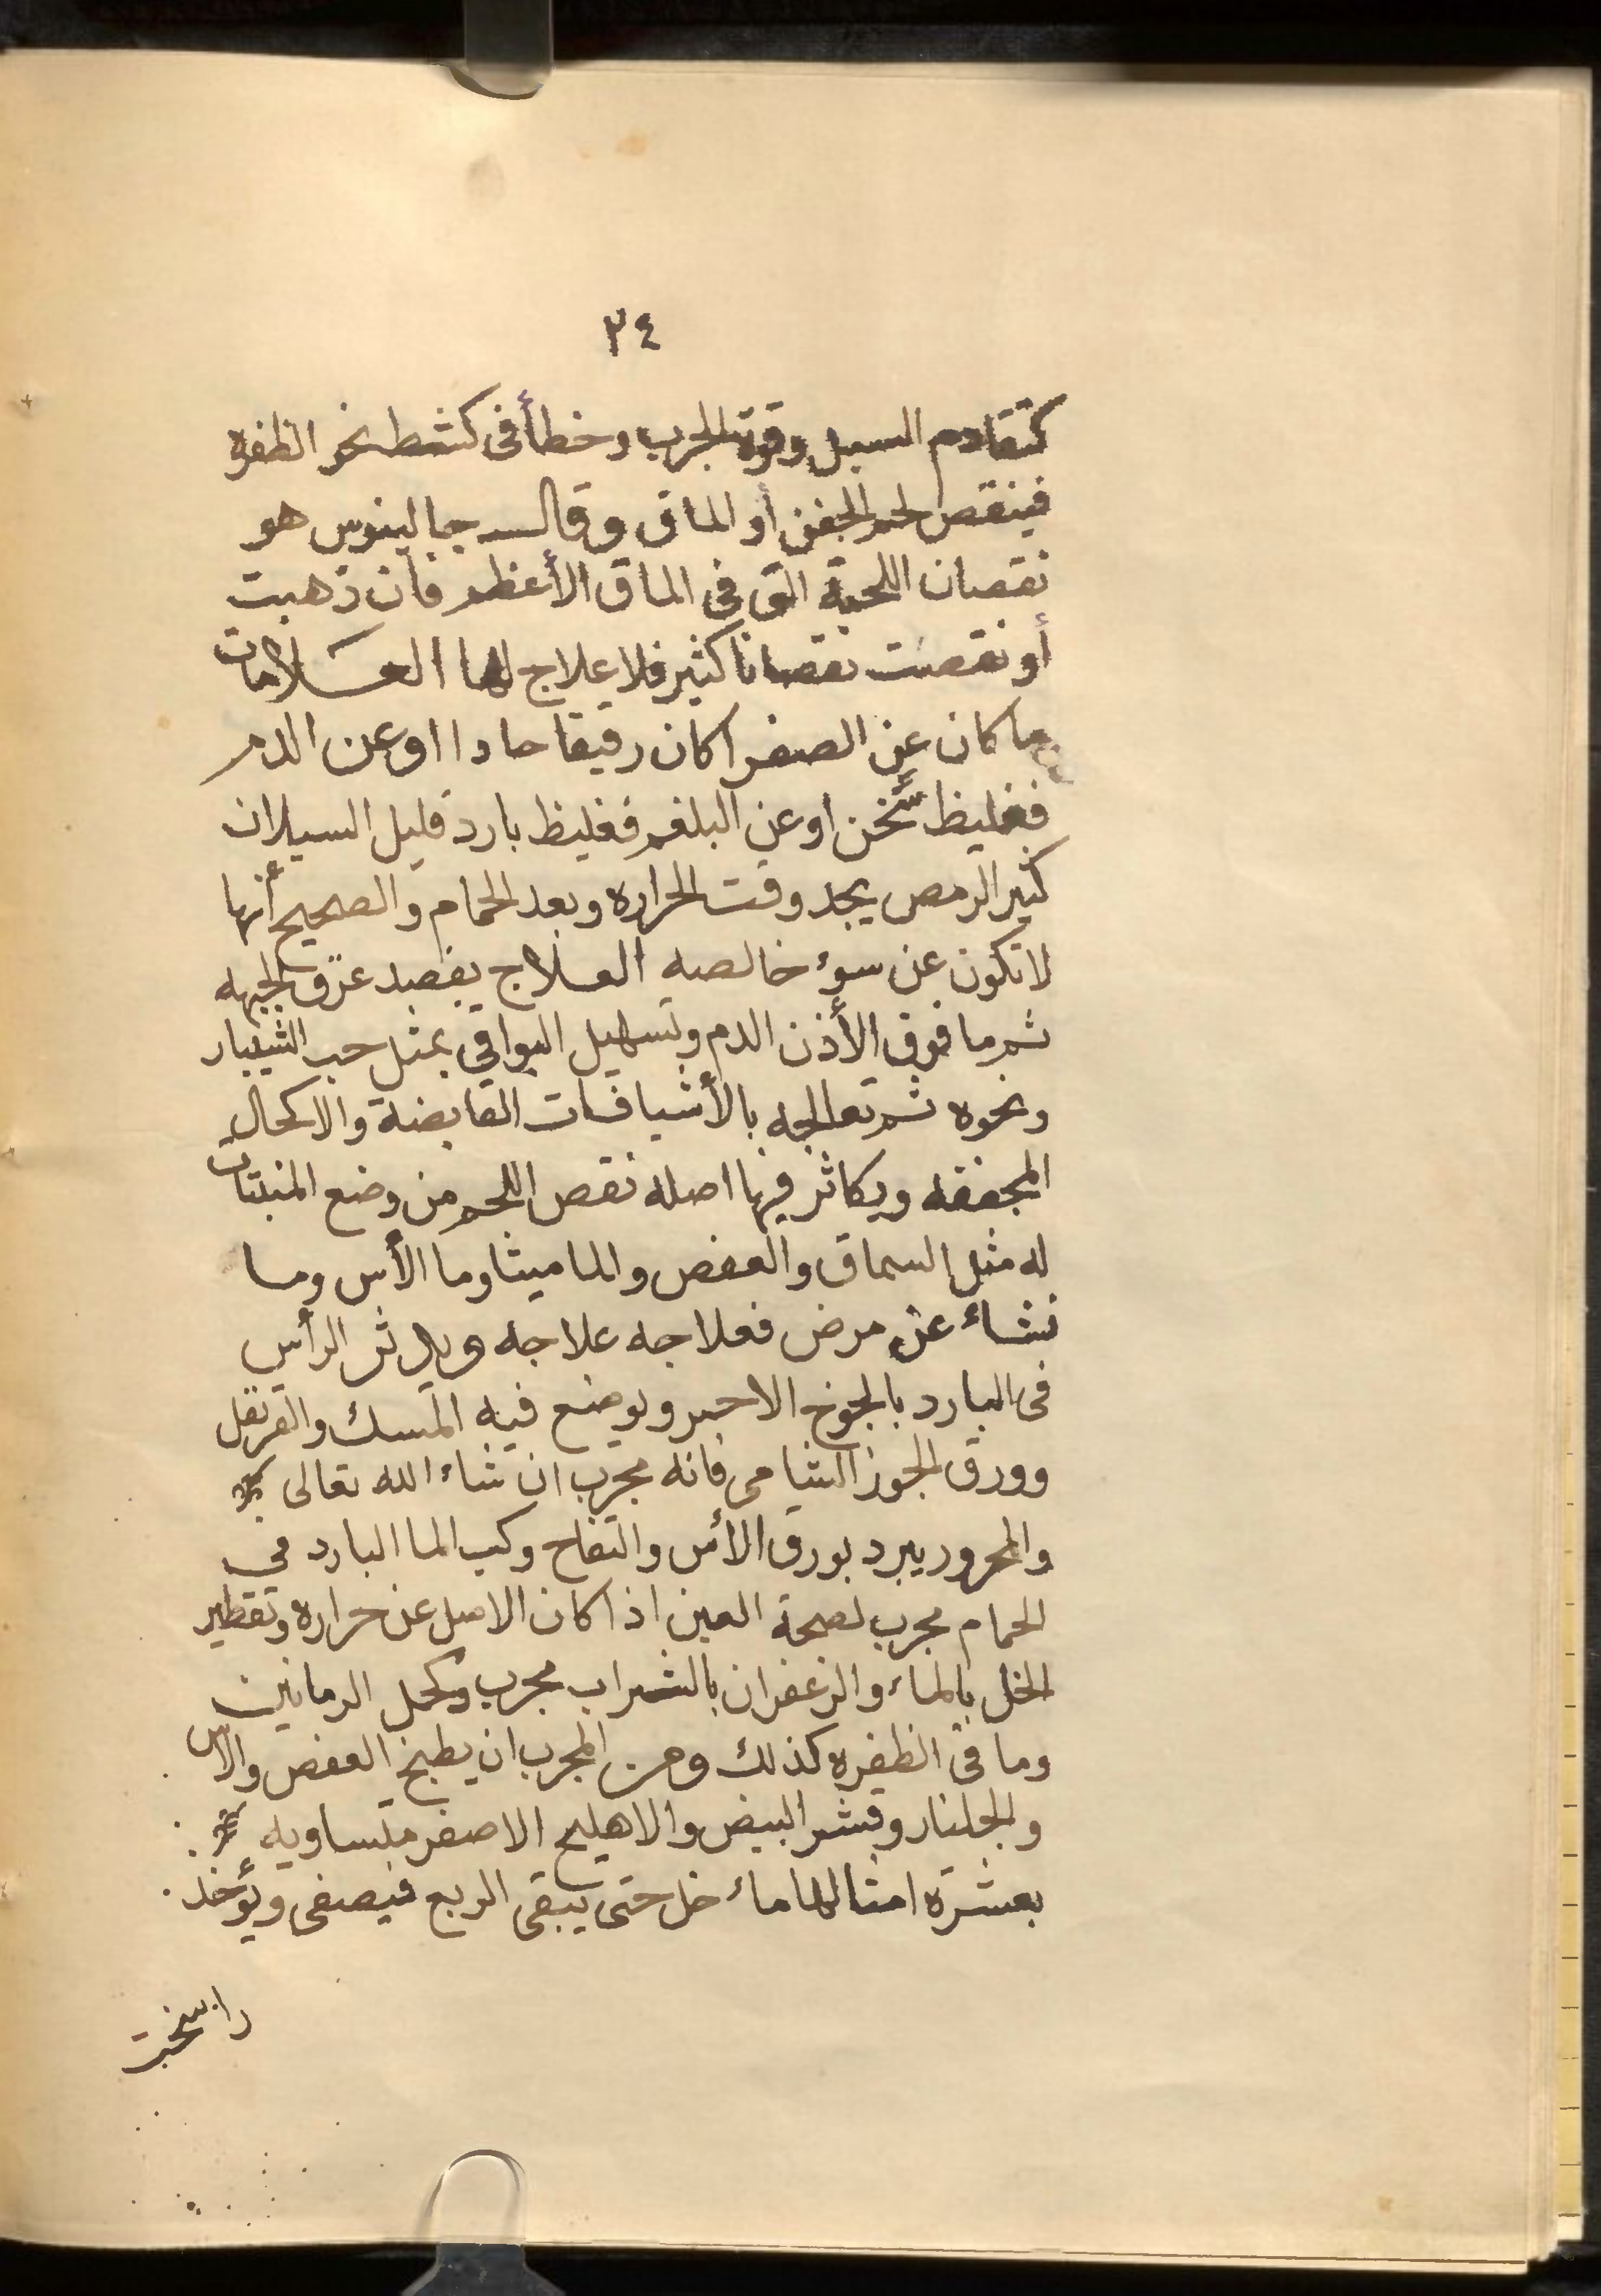 ٣٤
كتقادم السبل وقوة الجرب وخطأ فى كشط نحو الظفره
فينقص لحم الجفن أو الماق وقال جالينوس هو
نقصان اللحمة التى فى الماق الأعظم فان ذهبت
أو نقصت نقصانا كثير فلا علاج لها العلامات
ما كان عن الصفرا كان رقيقا حادا اوعن الدم
فغليظ سخن اوعن البلغم فغليظ بارد قليل السيلان
كثير الرمص يجد وقت الحراره وبعد الحمام والصحيح أنها
لا تكون عن سوء خالصه العلاج يفصد عرق الجبهه
ثم ما فوق الأذن الدم وتسهيل البواقى بمثل حب الشيبار
ونحوه ثم تعالجه بالأشيافات القابضة والاكحال
المجففه ويكاثر فيها اصله نقص اللحم من وضع المنبتات
له مثل السماق والعفص والماميثا وما الأس وما
نشاء عن مرض فعلاجه علاجه ويدثر الرأس
فى البارد بالجوخ الاحمر ويوضع فيه المسك والقرنفل
وورق الجوز الشامى فانه مجرب ان شاء الله تعالى
والمحرور يبرد بورق الأس والتفاح وكب الما البارد فى
الحمام مجرب لصحة العين اذا كان الاصل عن حراره وتقطير
الخل بالماء والزعفران بالشراب مجرب وكحل الرمانين
وما فى الظفره كذلك ومن المجرب ان يطبخ العفص والاس
والجلنار وقشر البيض والاهليلج الاصفر متساويه
بعشرة امثالها ماء خل حتى يبقى الربع فيصفى ويؤخذ